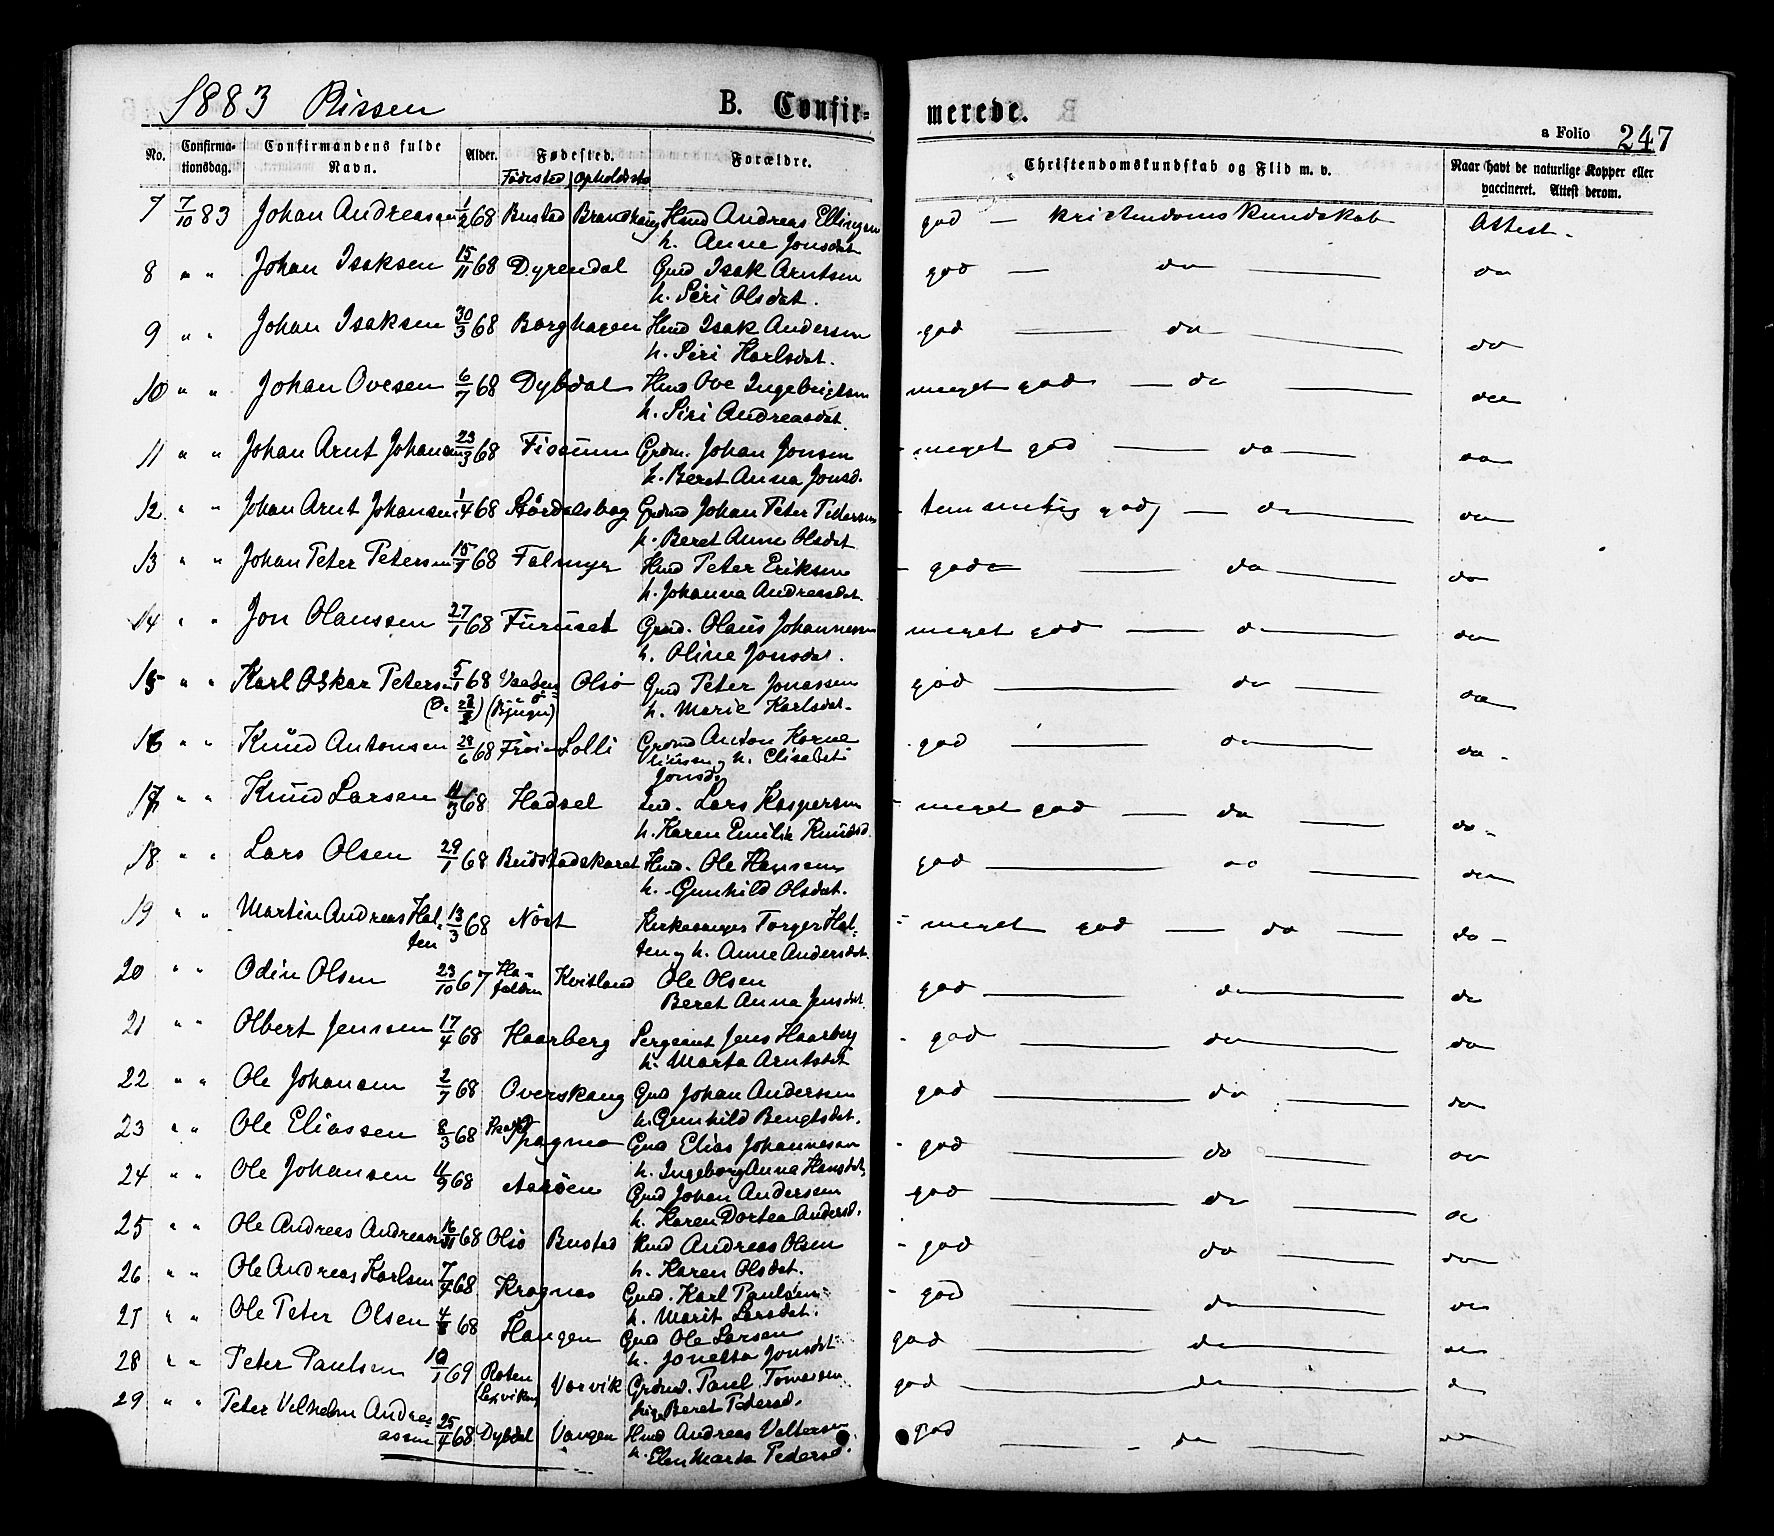 1883 Rissen B. Confir- merede. a Folio 247
No. Confirma-tionsdag. Confirmandens fulde Navn. Alder. Fødested. Forældre. Christendomskundskab og Flid m. v. Naar havt de naturlige Kopper eller vaccineret. Attest herom.
Fødested Opholdssted
7 7/10 83 Johan Andreassen 1/2 68 Bustad Brandhaug Hmd Andreas Ellingsen god — kristendoms kundskab Attest.
h. Anne Jonsdat
8 " " Johan Isaksen 15/11 68 Dyrendal Gmd Isak Arntsen god — do — do
h. Siri Olsdat.
9 " " Johan Isaksen 30/3 68 Borghagen Hmd Isak Andersen god — do — do
h. Siri Karlsdat.
10 " " Johan Ovesen 6/7 68 Dybdal Hmd Ove Ingebrigtsen meget god — do — do
h. Siri Andreasdat.
11 " " Johan Arnt Johansen 23/3 68 Fissum Grdm. Johan Jonsen meget god — do — do
h. Beret Anna Jonsd.
12 " " Johan Arnt Johansen 1/4 68 Størdalsbag Grdmd Johan Peter Petersen temmelig god — do — do
h. Beret Anne Olsdat
13 " " Johan Peter Petersen 15/7 68 Falmyr Hmd Peter Eriksen gode — do — do
h. Johanna Andreasdat.
14 " " Jon Olaussen 27/1 68 Furuset Gmd. Olaus Johannesen meget god — do — do
h. Oline Jonsdat.
15 " " Karl Oskar Petersen 5/1 68 Olsø Gmd Peter Jonassen god — do — do
(Bjugn) h. Marie Karlsdat.
16 " " Knud Antonsen 28/6 68 Frøien Solli Grdmd Anton Korne god — do — do
liussen og h. Elisabet
Jonsdt
17 " " Knud Larsen 11/3 68 Hadsel Ind. Lars Kaspersen meget god — do — do-
h. Karen Emilie Knudsd.
18 " " Lars Olsen 29/1 68 Budstadskaret Hmd. Ole Hansen god — do — do
h. Gunhild Olsdat.
19 " " Martin Andreas Hal- 13/3 68 Nöst Kirkesanger Torger Hal- meget god — do — do -
ten ten og h. Anne Andersdat.
20 " " Odin Olsen 23/10 67 Kvitland Ole Olsen god — do — do
Beret Anna Jensdat
21 " " Olbert Jenssen 17/4 68 Haarberg Sergeant Jens Haarberg god — do — do
h. Marta Arntsdt
22 " " Ole Johansen 2/7 68 Overskaug Gmd Johan Andersen god — do — do
h. Gunhild Bengtsdat.
23 " " Ole Eliassen 8/3 68 Gmd Elias Johannesen god — do — do
h. Ingeborg Anna Hansdat,
24 " " Ole Johansen 11/9 68 Aasøen Gmd Johan Andersen god — do — do
h. Karen Dortea Andersd.
25 " " Ole Andreas Andreasen 16/11 68 Olsø Bustad Hmd Andreas Olsen god — do — do
h. Karen Olsdat.
26 " " Ole Andreas Karlsen 7/4 68 Kragnæs Gmd. Karl Paulsen god — do — do
h. Marit Larsdat.
27 " " Ole Peter Olsen 4/8 68 Haugen Gmd Ole Larsen god — do — do
h. Jonetta Jonsdat
28 " " Peter Paulsen 10/1 69 Roten Vorvik Grdmd. Paul Tomassen god — do — do
(Lexviken) Beret Petersd.
29 " " Peter Vilhelm Andre- god — do — do
assen 25/4 68 Dybdal Vangen Hmd Andreas Valtersen
h. Elen Marta Pedersd.